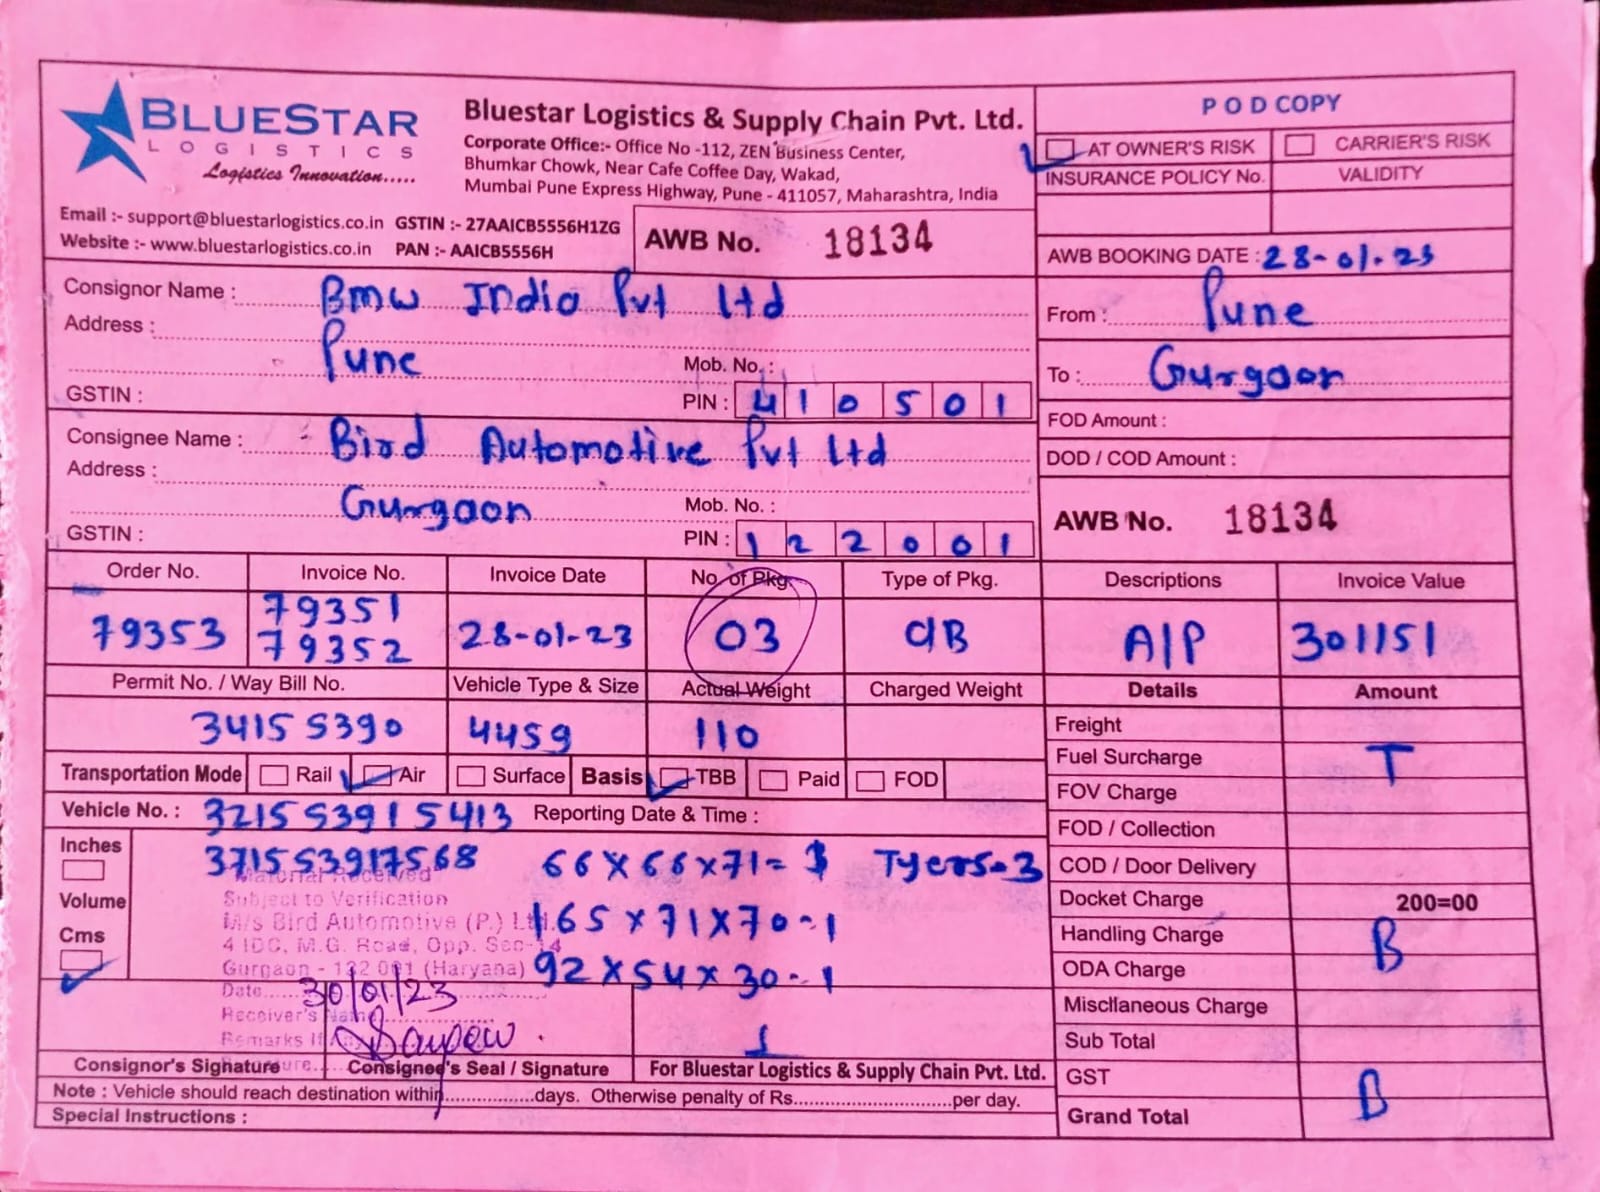 BLUESTAR
LOGISTICS
Logistics Innovation.....
Bluestar Logistics & Supply Chain Pvt. Ltd.
Corporate Office:- Office No -112, ZEN Business Center,
Bhumkar Chowk, Near Cafe Coffee Day, Wakad,
Mumbai Pune Express Highway, Pune - 411057, Maharashtra, India
Email :- support@bluestarlogistics.co.in GSTIN :- 27AAICB5556H1ZG
Website :- www.bluestarlogistics.co.in PAN :- AAICB5556H
AWB No. 18134
POD COPY
AT OWNER'S RISK CARRIER'S RISK
INSURANCE POLICY No. VALIDITY
AWB BOOKING DATE : 28-01-23
Consignor Name : Bmw India Pvt Ltd
Address :
Pune Mob. No. :
GSTIN : PIN : 410501
From : Pune
To : Gurgaon
FOD Amount :
DOD / COD Amount :
Consignee Name : Bird Automotive Pvt Ltd
Address :
Gurgaon Mob. No. :
GSTIN : PIN : 122001
AWB No. 18134
Order No. Invoice No. Invoice Date No. of Pkg. Type of Pkg. Descriptions Invoice Value
79353 79351 28-01-23 03 CB A/P 301151
79352
Permit No. / Way Bill No. Vehicle Type & Size Actual Weight Charged Weight Details Amount
3415 5390 4459 110
Freight
Fuel Surcharge T
FOV Charge
FOD / Collection
COD / Door Delivery
Docket Charge 200=00
Handling Charge B
ODA Charge
Miscllaneous Charge
Sub Total
GST
Grand Total B
Transportation Mode Rail Air Surface Basis TBB Paid FOD
Vehicle No. : 321553915413 Reporting Date & Time :
Inches
Volume
Cms
371553917568 66 X 66 X 71= Tyers-3
165 X 71 X 70-1
92 X 54 X 30-1
Material Received
Subject to Verification
M/s Bird Automotive (P.) Ltd.
4 IDC, M.G. Road, Opp. Sec-14
Gurgaon - 122 001 (Haryana)
Date...... 30/01/23
Receiver's Name
Remarks If Any
Consignor's Signature Consignee's Seal / Signature For Bluestar Logistics & Supply Chain Pvt. Ltd.
Note : Vehicle should reach destination within................days. Otherwise penalty of Rs............................per day.
Special Instructions :